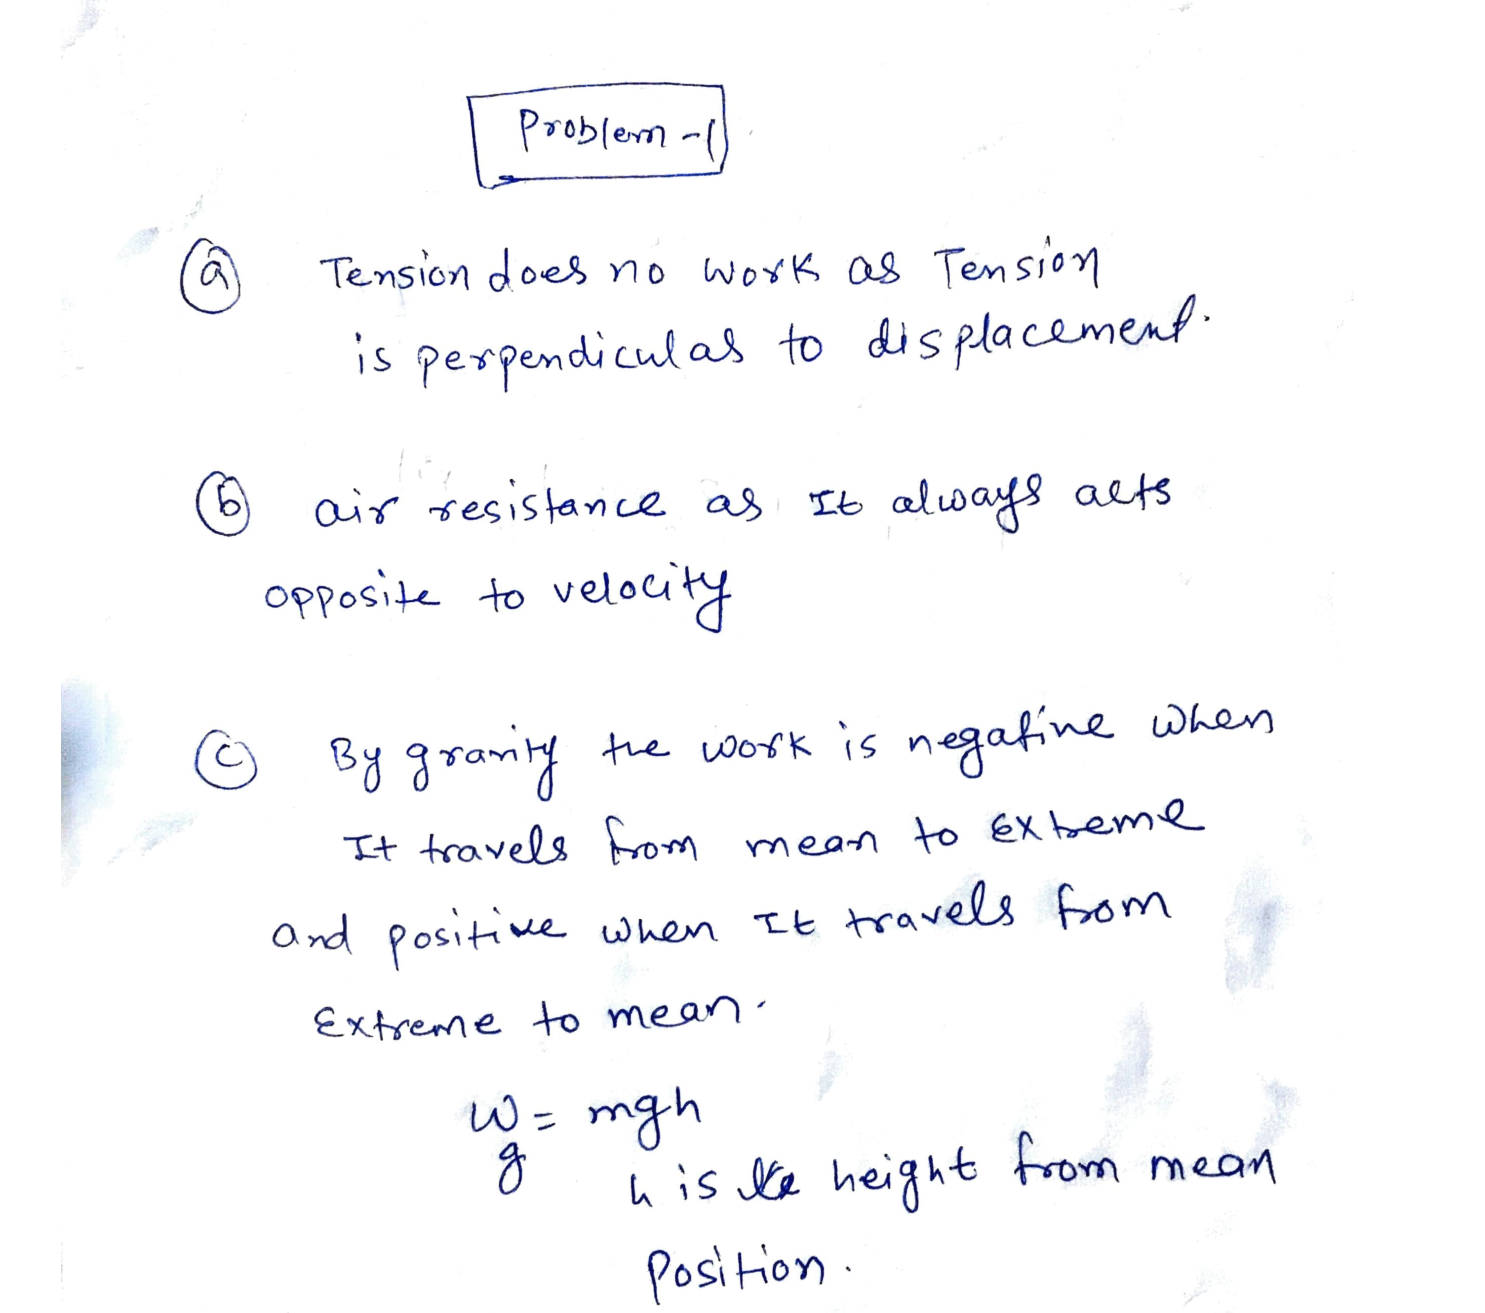 Problem -1
(a) Tension does no work as Tension
is perpendicular to displacement.
(b) air resistance as It always acts
opposite to velocity
(c) By gravity the work is negative when
It travels from mean to Extreme
and positive when It travels from
Extreme to mean.
Wg = mgh
h is the height from mean
Position.